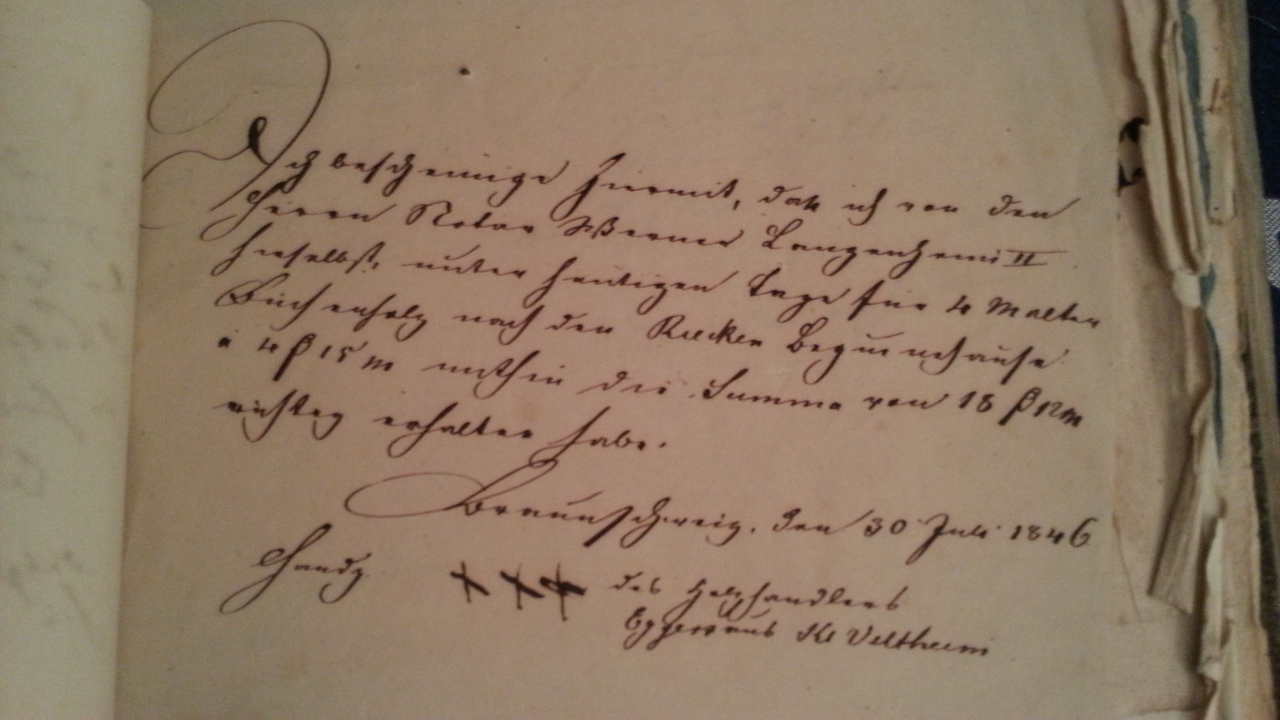 Ich bescheinige hiermit, daß ich von den
Herrn Notar Werner Langenheim II
hieselbst, unter heutigen Tage für 4 Malter
Buchenholz nach den Beguinehause
a 4 β 15 m mithin die Summa von 18 β 12 m
richtig erhalten habe.
Braunschweig, den 30 Juli 1846
Handz. +++ des Holzhändlers
Kl Veltheim